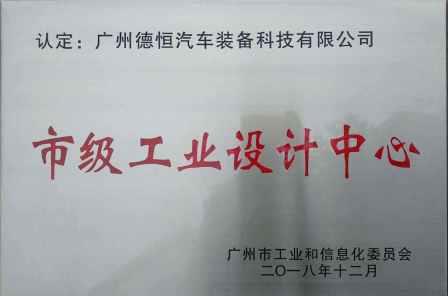 认定：广州德恒汽车装备科技有限公司
市级工业设计中心
广州市工业和信息化委员会
二〇一八年十二月